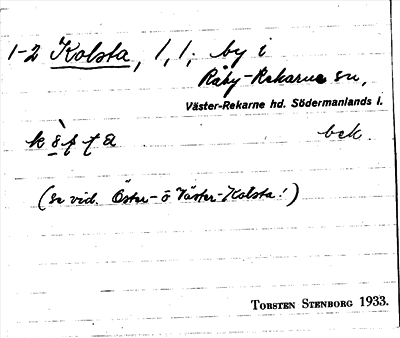 1-2 Kolsta, 1, 1; by i
Råby-Rekarne sn,
Väster-Rekarne hd. Södermanlands l.
bek.
(Se vid. Öster- o Väster-Kolsta!)
TORSTEN STENBORG 1933.